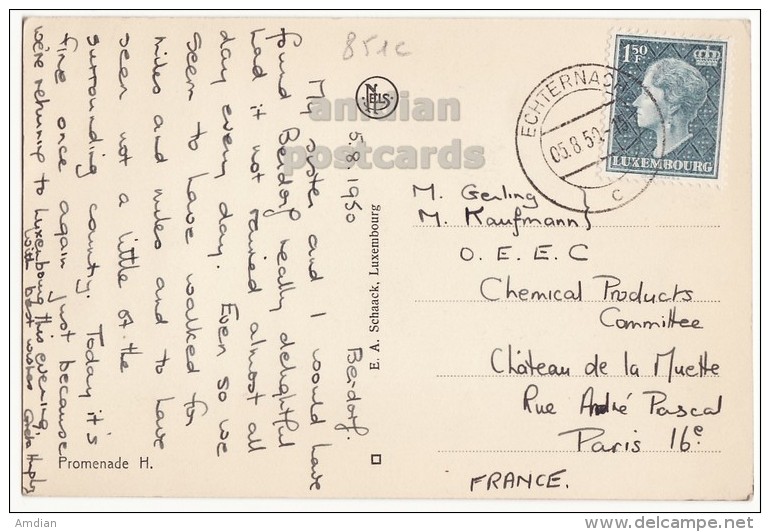 851c
NELS
amdian
postcards
Berdorf.
5.8.1950
My sister and I would have
found Berdorf really delightful
had it not rained almost all
day every day. Even so we
seem to have walked for
miles and miles and to have
seen not a little of the
surrounding county. Today it's
fine once again just because
we're returning to Luxembourg this evening,
with best wishes
Promenade H.
E. A. Schaack, Luxembourg
1,50
Fr
LUXEMBOURG
ECHTERNACH
05.8.50
c
M. Gerling
M. Kaufmann
O. E. E. C
Chemical Products
Committee
Château de la Muette
Rue André Pascal
Paris 16e
FRANCE.
Amdian
http://www.delcampe.net